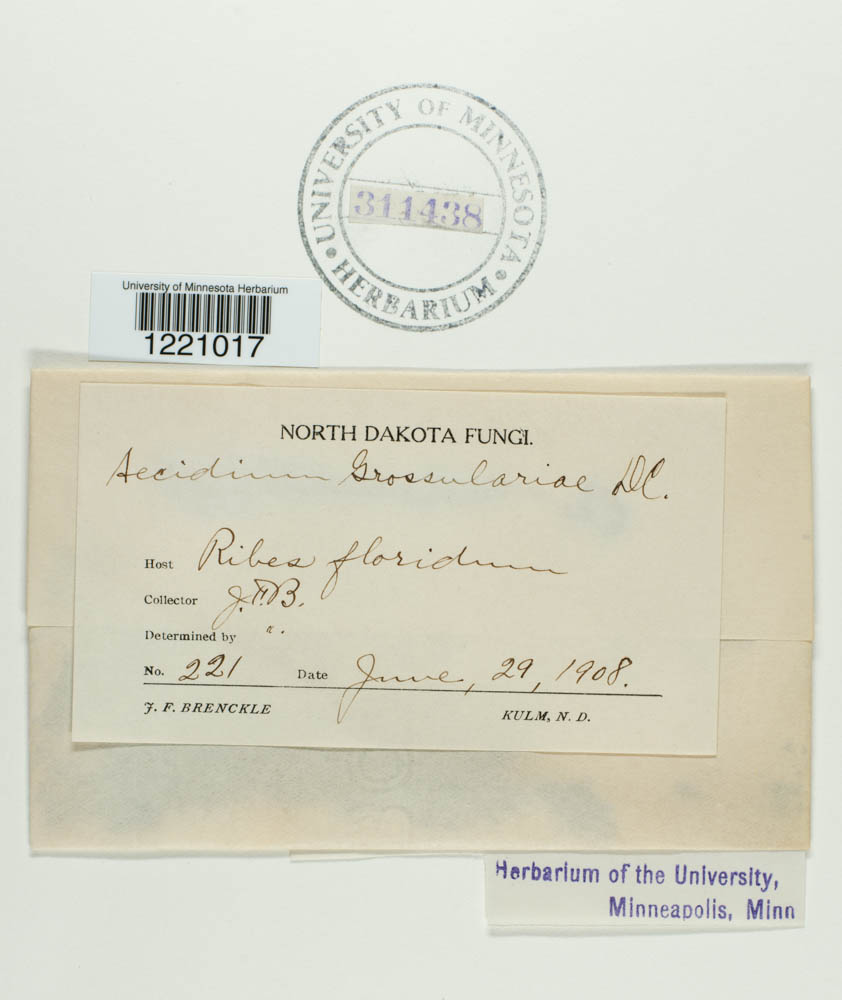 UNIVERSITY OF MINNESOTA
311438
• HERBARIUM •
University of Minnesota Herbarium
1221017
NORTH DAKOTA FUNGI.
Aecidium Grossulariae DC.
Host Ribes floridum
Collector J.F.B.
Determined by ".
No. 221 Date June, 29, 1908.
J. F. BRENCKLE KULM, N. D.
Herbarium of the University,
Minneapolis, Minn